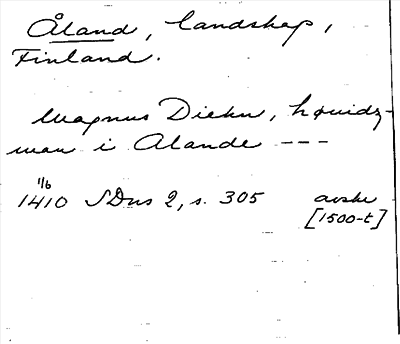 Åland, landskap,
Finland.
Magnus Diekn, høuidz-
man i Alande ---
1/6
1410 SDns 2, s. 305 avskr
[1500-t]